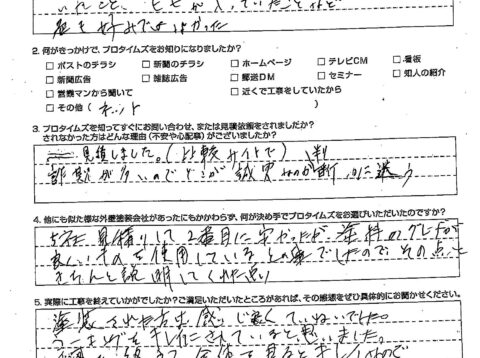 2. 何がきっかけで、プロタイムズをお知りになりましたか?
□ ポストのチラシ □ 新聞のチラシ □ ホームページ □ テレビCM □ 看板
□ 新聞広告 □ 雑誌広告 □ 郵送DM □ セミナー □ 知人の紹介
□ 営業マンから聞いて □ 近くで工事をしていたから
□ その他 ( ネット )
3. プロタイムズを知ってすぐにお問い合わせ、または見積依頼をされましたか?
されなかった方はどんな理由(不安や心配事)がございましたか?
見積しました。(比較サイトで) 判
詐欺が多いのでどこが誠実なのか断 に迷う
4. 他にも似た様な外壁塗装会社があったにもかかわらず、何が決め手でプロタイムズをお選びいただいたのですか?
5社 見積りして2番目に安かったが 塗料のグレードが
良いものを使用している との事でしたので その点と
きちんと説明してくれた点
5. 実際に工事を終えていかがでしたか?ご満足いただいたところがあれば、その感想をぜひ具体的にお聞かせください。
塗装 ていねいでした。
キレイにされていると思いました。